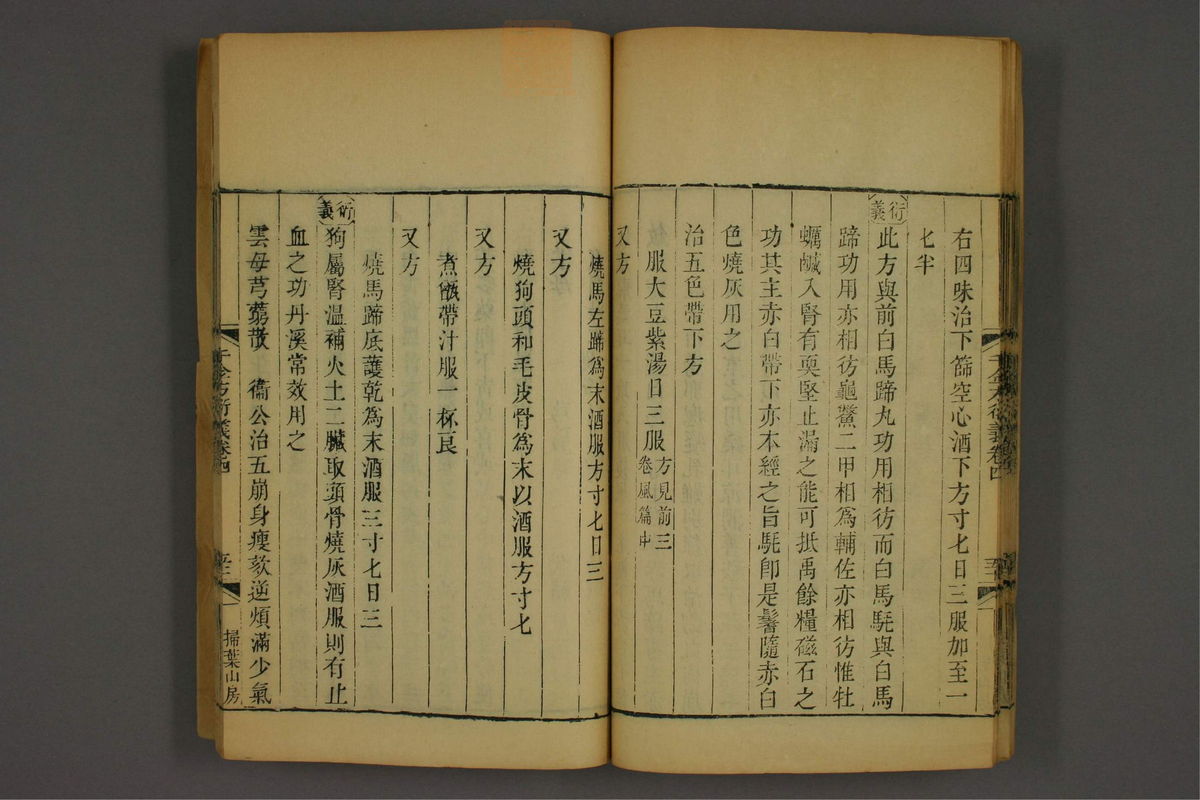 右四味治下篩空心酒下方寸匕日三服加至一
匕半
衍義
此方與前白馬蹄丸功用相彷而白馬駹與白馬
蹄功用亦相彷龜鱉二甲相爲輔佐亦相彷惟牡
蠣鹹入腎有耎堅止漏之能可抵禹餘糧磁石之
功其主赤白帶下亦本經之旨駹卽是鬐隨赤白
色燒灰用之
治五色帶下方
服大豆紫湯日三服方見前三
卷風篇中
又方
燒馬左蹄爲末酒服方寸匕日三
又方
燒狗頭和毛皮骨爲末以酒服方寸匕
又方
煮甑帶汁服一杯良
又方
燒馬蹄底護乾爲末酒服三寸匕日三
衍義
狗屬腎溫補火土二臟取頭骨燒灰酒服則有止
血之功丹溪常效用之
雲母芎藭散　衞公治五崩身瘦欬逆煩滿少氣
千金方衍義卷四
掃葉山房